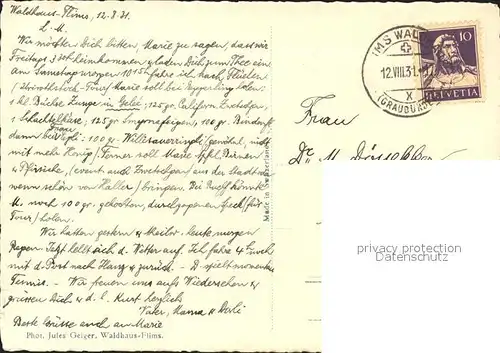 Waldhaus-Flims, 12.8.31.
L. M.
Wir möchten Dich bitten, Marie zu sagen, dass wir
Freitags 3 heimkommen & laden Dich zum Thee ein
Am Samstag morgen 10 15 fahre ich nach Flüelen
Tour/Marie soll bei holen:
1 kl. Büchse Zunge in Gelée, 125 gr. Californ. Zwetschgen,
1 Schachtelkäse, 125 gr. Smyrnafeigen, 100 gr.
dann bei 100 gr.
mit mehr Honig/Ferner soll Marie Birnen
& Pfirsiche, (event. auch Zwetschgen) aus der Stadt
wenn schön von Haller/bringen. Bei könnte
M. noch 100 gr. gekochten, durchzogenen Speck (für
Tour) holen.
Wir hatten gestern & heute morgen
Regen. Jetzt hellt sich d. Wetter auf. Ich fahre 4 noch
mit d. Post nach Ilanz & zurück. – D. spielt momentan
Tennis. – Wir freuen uns aufs Wiedersehen &
grüssen Dich & d. l. Kurt herzlich
Vater, Mama & Dorli
Beste Grüsse auch an Marie
Phot. Jules Geiger, Waldhaus-Flims.
Made in Switzerland
12.VIII.31.
X
(GRAUBÜNDEN)
10
HELVETIA
Frau
Dr. M.
privacy protection
Datenschutz